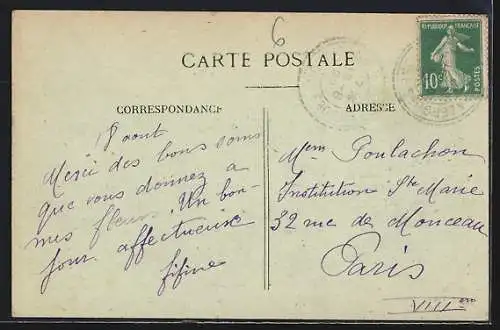 6
CARTE POSTALE
REPUBLIQUE FRANÇAISE
10c
POSTES
CORRESPONDANCE
ADRESSE
18 aout
Merci des bons soins
que vous donnez a
mes fleurs. Un bon-
jour affectueux
fifine
Mem Poulachon
Institution Ste Marie
32 rue de Monceau
Paris
VIII em